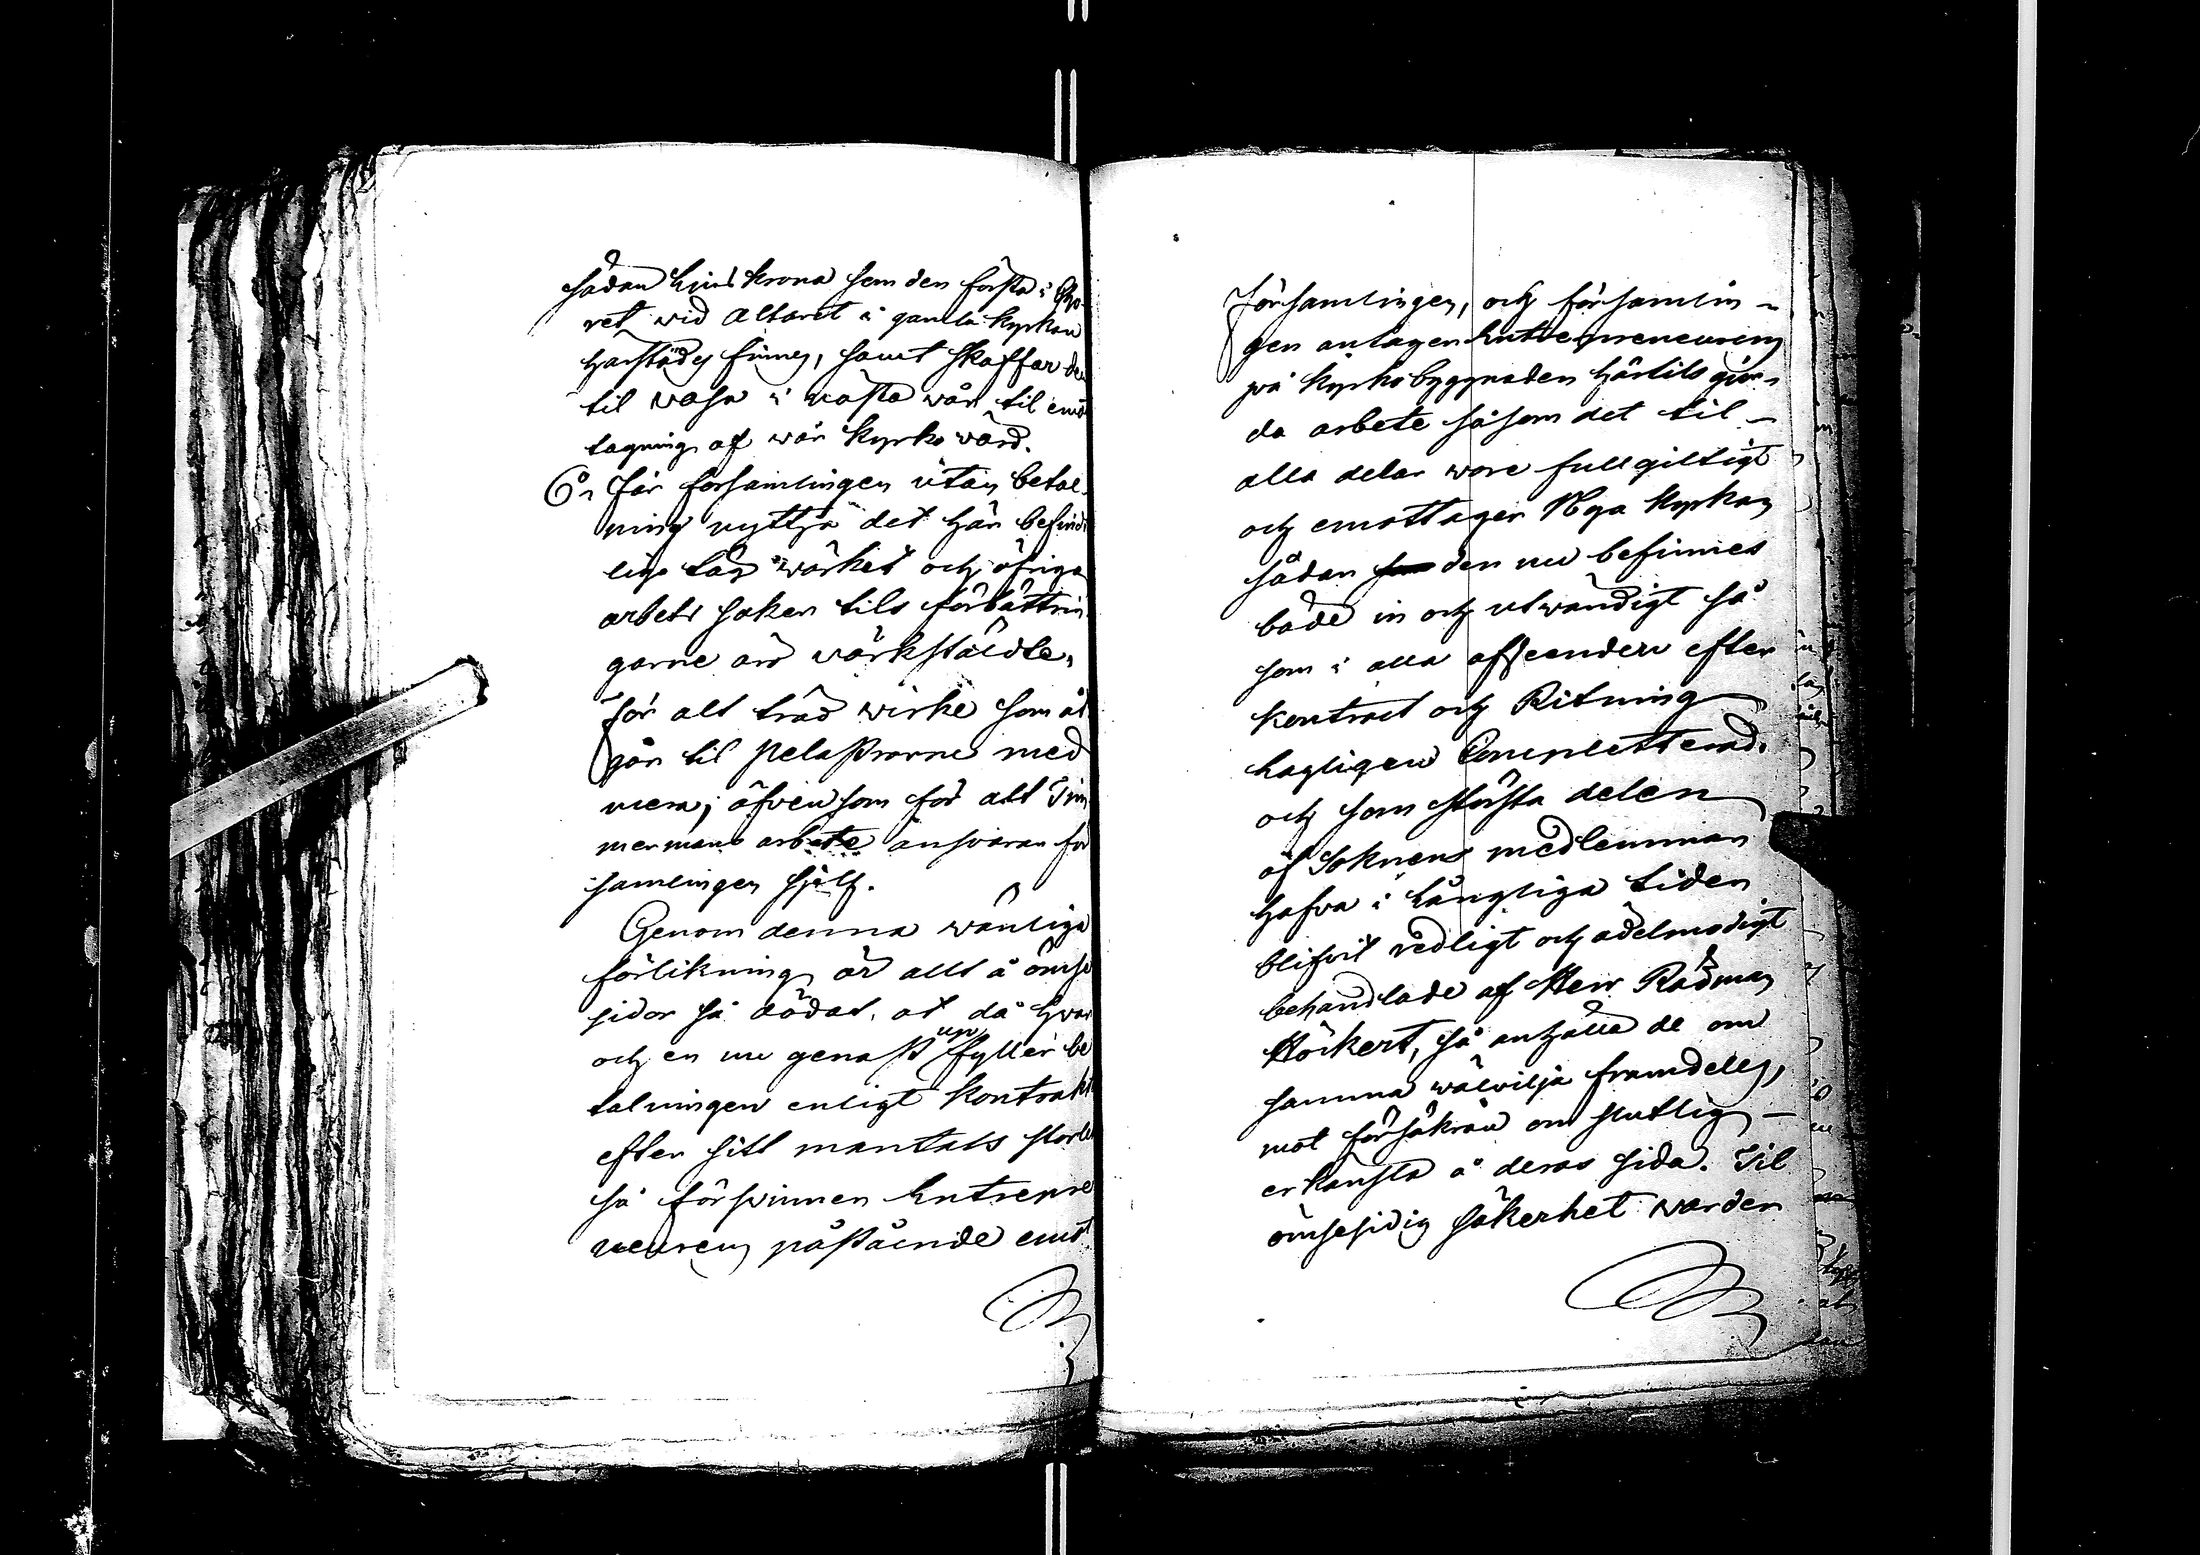 sådan Ljus krona som den första i Cho
ret wid Altaret i gamla kyrkan
härstädes finnes, samt skaffar den
til Wasa i nästa wår til emot
tagning af wår kyrko värd.
6o, får församlingen utan betal-
ning nyttja det här befind
liga tåg wärket och öfriga
arbets saker tils förbättrin
garne äro wärkstäldte,
för alt träd wirke som åt
går til pelastrarne med
mera, äfvensom för alt Tim
mermans arbete ansvarar för
samlingen sjelf.
Genom denna wänliga
förlikning är allt å ömse
sidor så dödat, at då hwar
och en nu genast uppfyller be
talningen enligt Kontrakt
efter sitt mantals storlek
så förswinner Entrepre
neurens påstående emot
församlingen, och församlin-
gen antager Entrepreneurens
på kyrkobyggnaden härtils gior-
da arbete såsom det til
alla delar wore fullgiltigt
och emottager Nya kyrkan
sådan den nu befinnes
både in och utwändigt så
som i alla afseenden efter
kontract och Ritning
lagligen Completterad.
och som största delen
af Soknens medlemmar
hafva i långliga tiden
blifvit redligt och ädelmodigt
behandlade af Herr Rådman
Höckert, så anhålla de om
samma wälvilja framdeles,
mot försäkran om slutlig
erkänsla å deras sida. Til
ömsesidig säkerhet warder